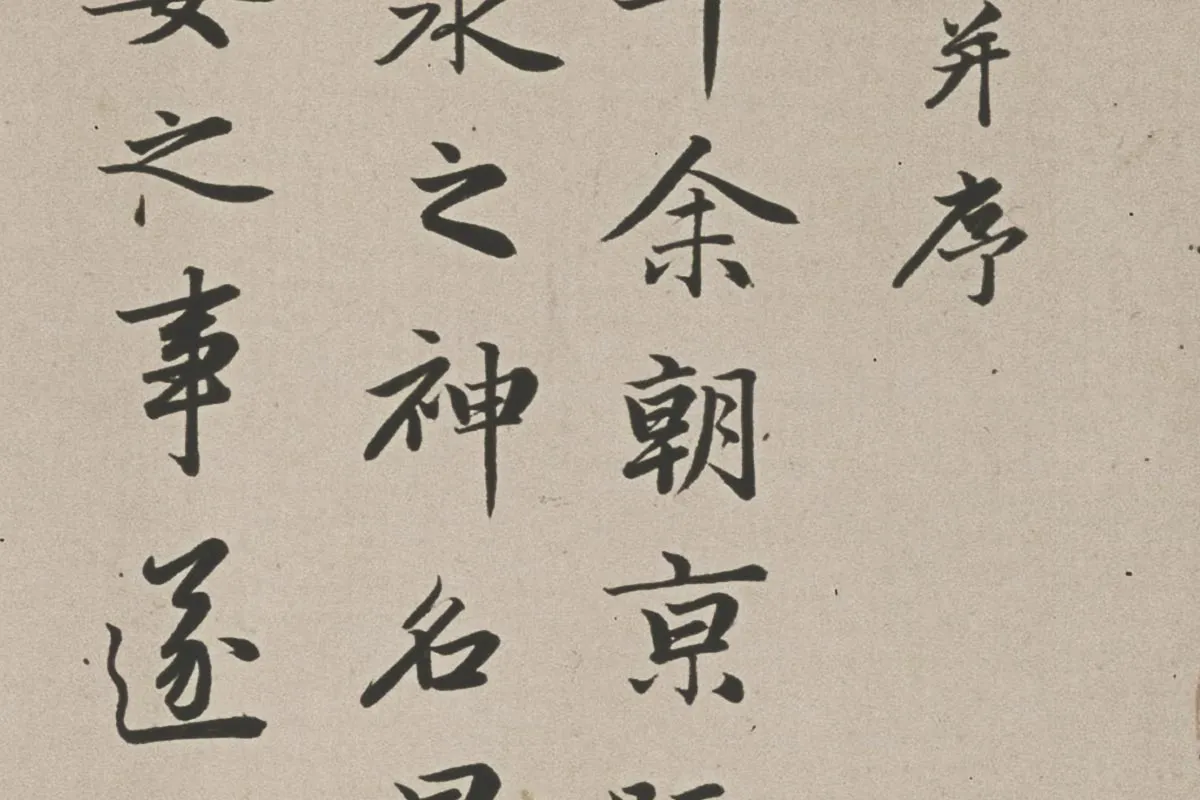 并序
余朝京
水之神名
女之事遂